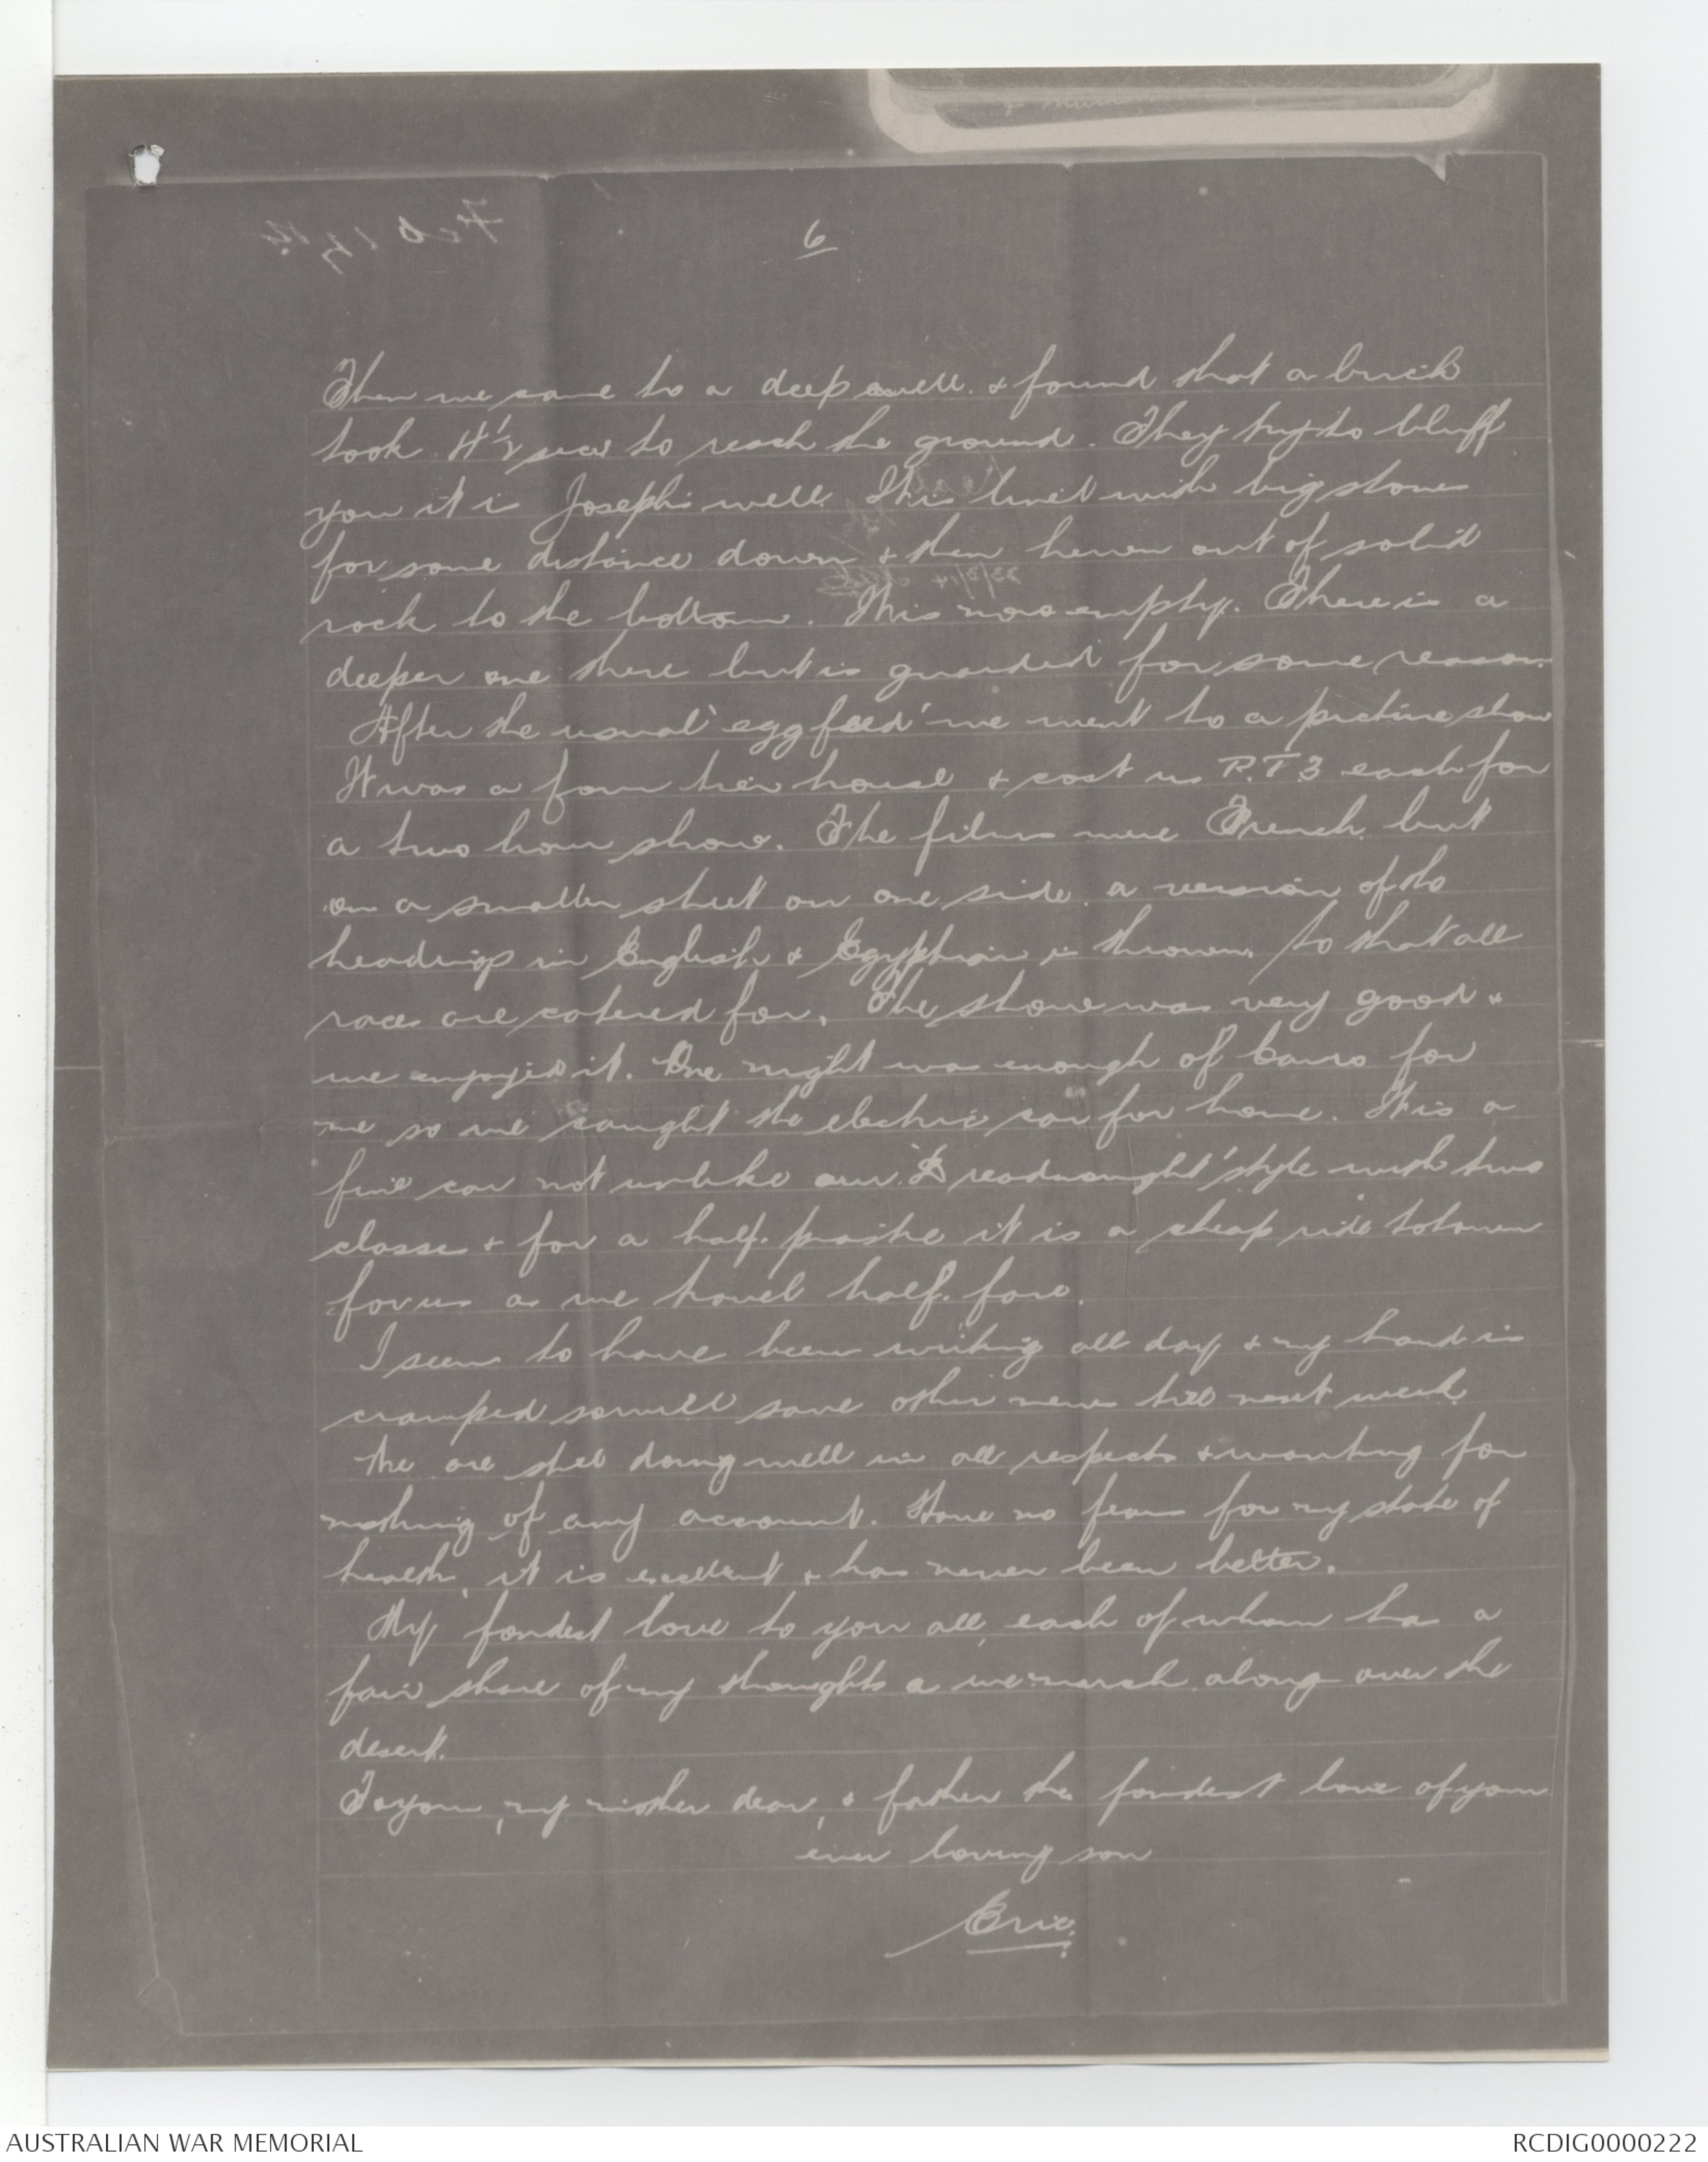 6
Then we came to a deep well & found that a brick
took 4½ secs to reach the ground. They try to bluff
you it is Joseph's well. It is lined with big stones
for some distance down & then hewn out of solid
rock to the bottom. This was empty. There is a
deeper one there but is guarded for some reason.
After the usual 'egg feed' we went to a picture show
It was a four tier house & cost us P.T 3 each for
a two hour show. The films were French but
on a smaller sheet on one side a version of the
headings in English & Egyptian is thrown, so that all
races are catered for. The show was very good &
we enjoyed it. One night was enough of Cairo for
me so we caught the electric car for home. It is a
fine car not unlike our 'Dreadnought' style with two
classes & for a half piastre it is a cheap ride to town
for us as we travel half fare.
I seem to have been writing all day & my hand is
cramped so will save other news till next week.
We are still doing well in all respects & wanting for
nothing of any account. Have no fears for my state of
health, it is excellent & has never been better.
My fondest love to you all, each of whom has a
fair share of my thoughts as we march along over the
desert.
To you, my mother dear, & father the fondest love of your
ever loving son
Eric.
AUSTRALIAN WAR MEMORIAL
RCDIG0000222